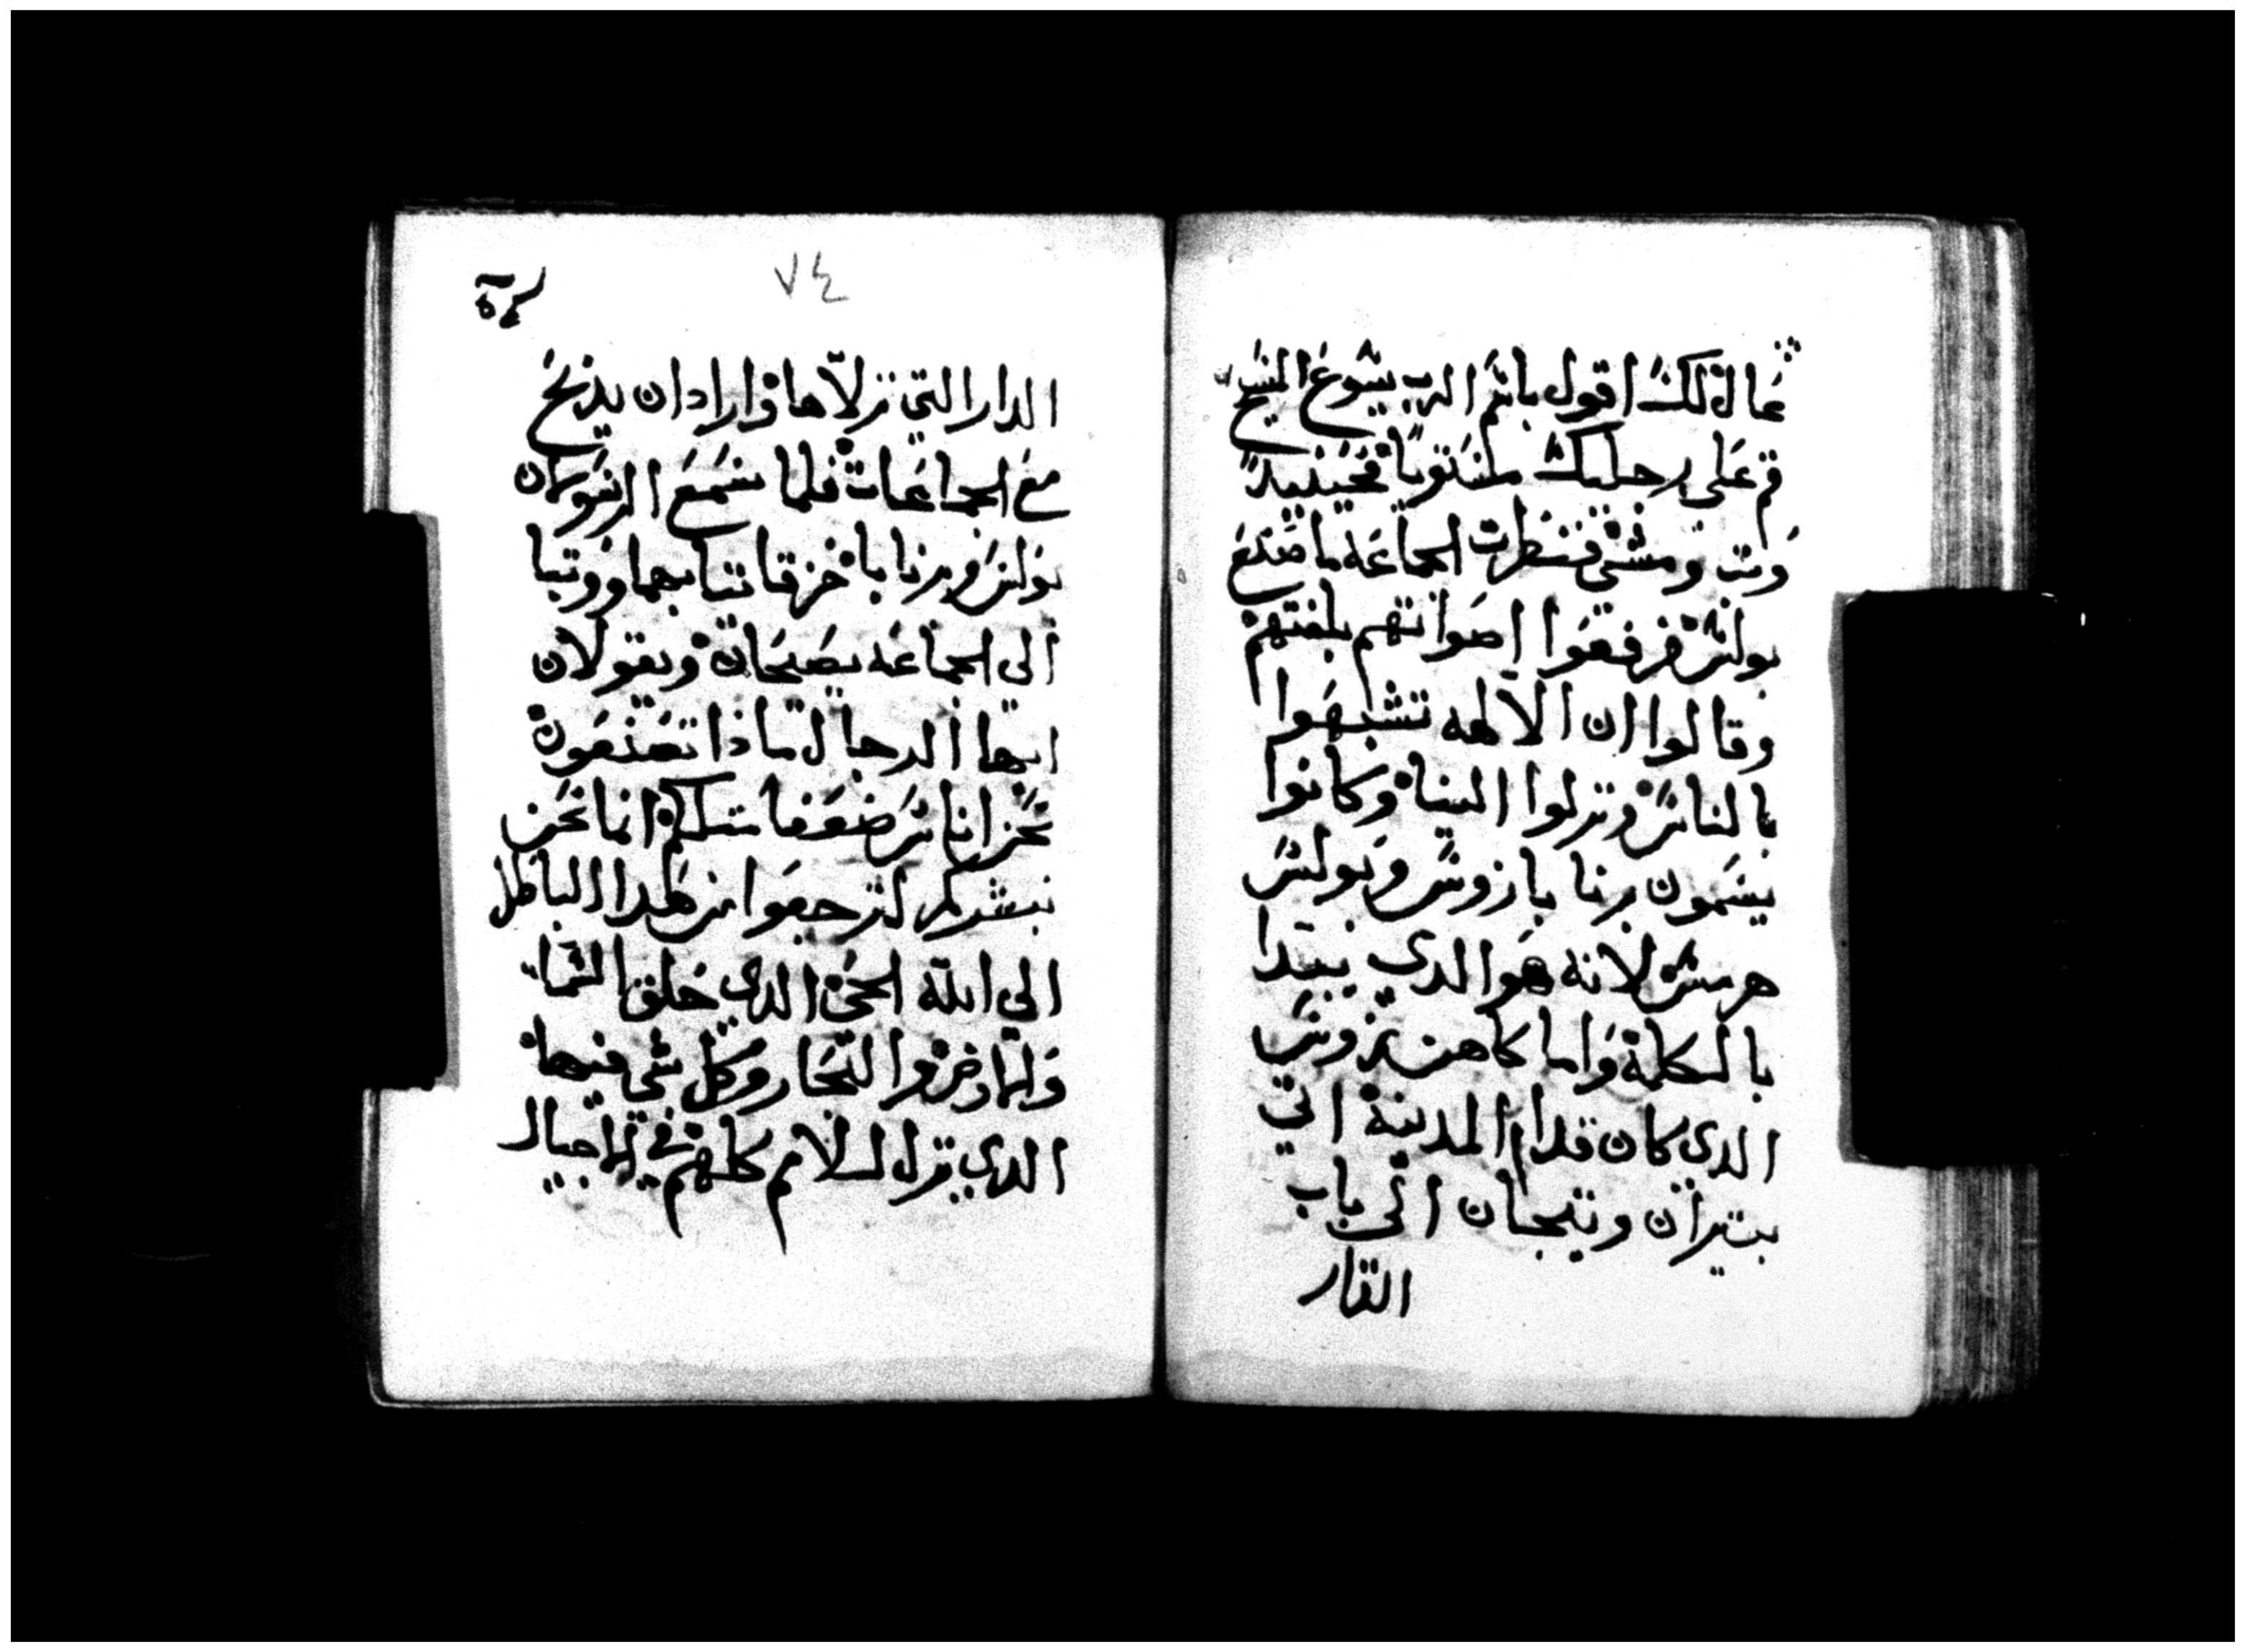 عال لك اقول باسم الرب يشوع المسيح
قم على رجليك مستويا فحينيد
وتب ومشى فنظرت الجماعه ما صنع
بولس فرفعوا اصواتهم بلغتهم
وقالوا ان الالهه تشبهوا
بالناس ونزلوا الينا وكانوا
يسمون برنابا زوس وبولس
هرمس لانه هو الدي يبتدا
بالكلمة واما كاهن زوس
الدي كان قدام المدينة اتي
بتيران وتيجان الى باب
الدار
٧٤
الدار التي نزلاها واراد ان يدبح
مع الجماعات فلما سمع الرسولان
بولس وبرنابا خرقا تيابهما ووتبا
الي الجماعه يصيحان ويقولان
ايها الرجال ماذا تصنعون
نحن اناس ضعفا متلكم انما نحن
نبشركم لترجعوا من هدا الباطل
الي الله الحي الدي خلق السما
والارض والبحار وكل شي فيها
الدي ترك للامم كلهم في الاجيال